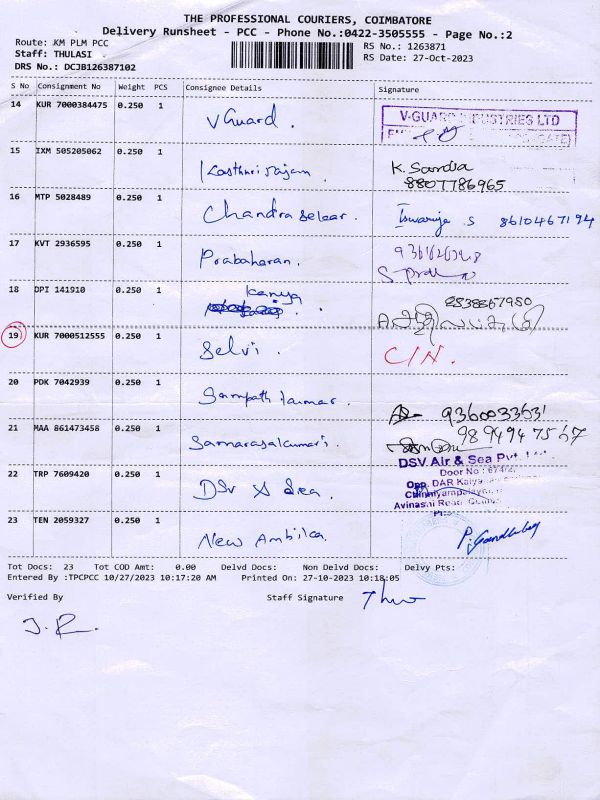 THE PROFESSIONAL COURIERS, COIMBATORE
Delivery Runsheet - PCC - Phone No.:0422-3505555 - Page No.:2
Route: KM PLM PCC
RS No.: 1263871
Staff: THULASI
RS Date: 27-Oct-2023
DRS No.: DCJB126387102
S No Consignment No Weight PCS Consignee Details Signature
14 KUR 7000384475 0.250 1 V Guard. V-GUARD INDUSTRIES LTD
15 IXM 505205062 0.250 1 Kasthuri rajam K. Sandia
8807786965
16 MTP 5028489 0.250 1 Chandra sekar. S 8610467194
17 KVT 2936595 0.250 1 Prabaharan.
18 DPI 141910 0.250 1 Kaniya
19 KUR 7000512555 0.250 1 Selvi. C/N.
20 PDK 7042939 0.250 1 Sampath kumar. 9360033631
21 MAA 861473458 0.250 1 9894947567
DSV Air & Sea Pvt. Ltd.
Door No: 
22 TRP 7609420 0.250 1 DSV & Sea. Opp. DAR
Avinashi Road
23 TEN 2059327 0.250 1 New Ambika
Tot Docs: 23 Tot COD Amt: 0.00 Delvd Docs: Non Delvd Docs: Delvy Pts:
Entered By :TPCPCC 10/27/2023 10:17:20 AM Printed On: 27-10-2023 10:18:05
Verified By Staff Signature
J. R.